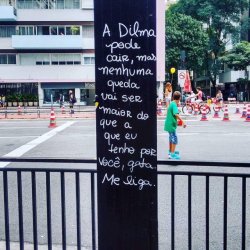 A Dilma
pode
cair, mas
nenhuma
queda
vai ser
maior do
que a
que eu
tenho por
você, gata.
Me liga.